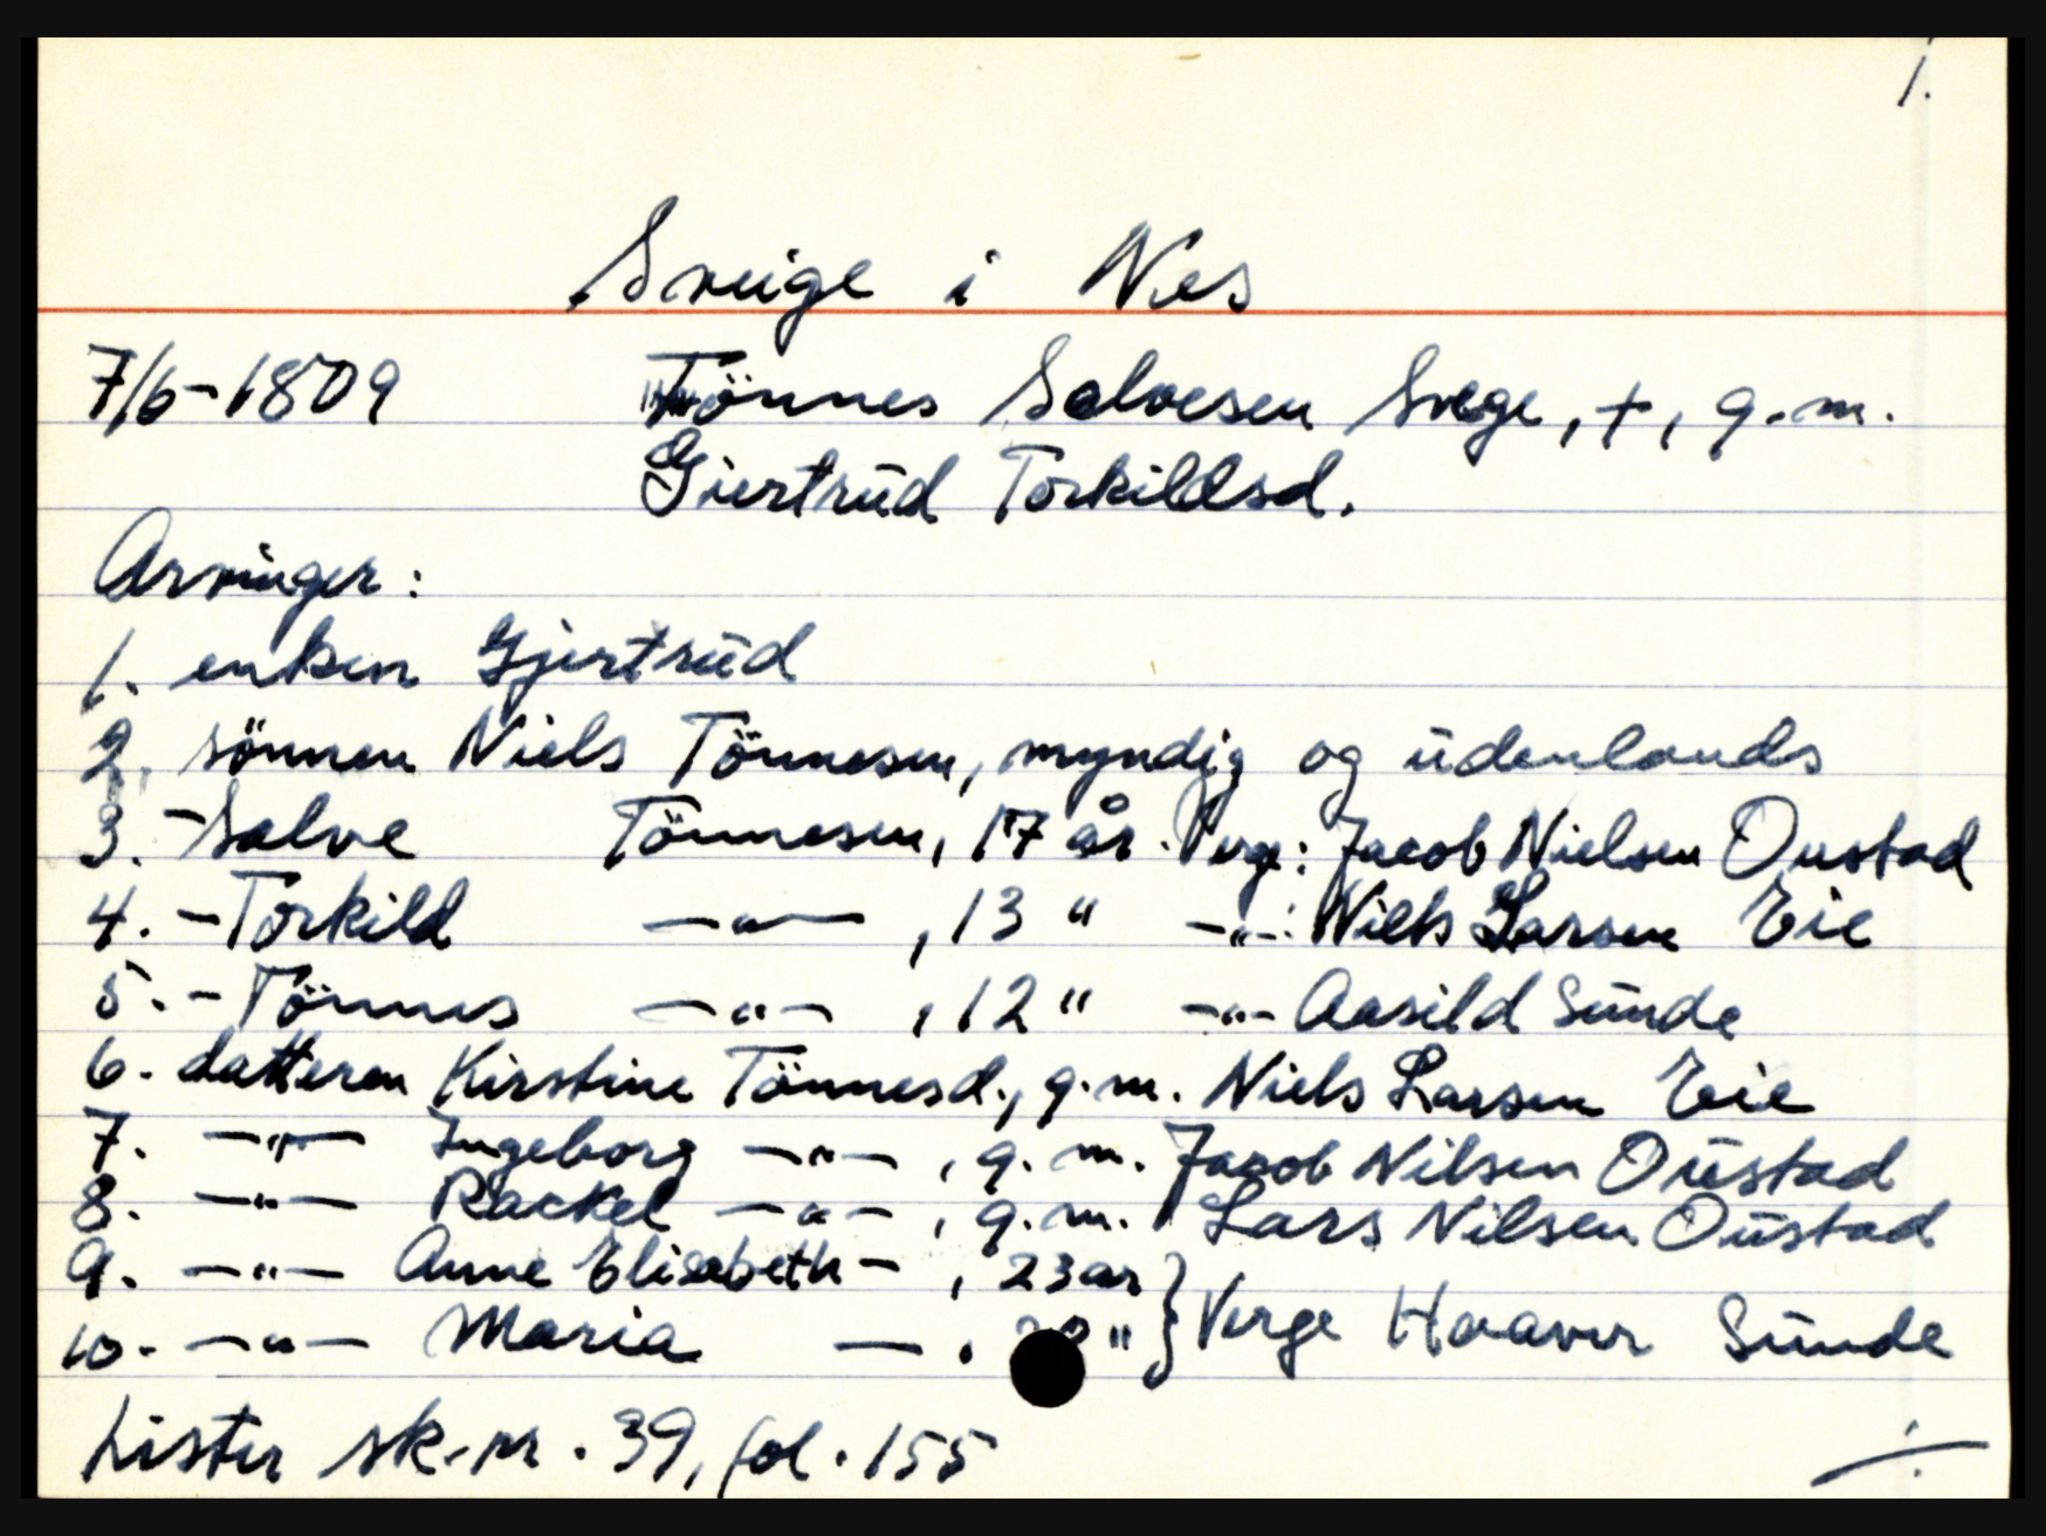 1.
Sveige i Nes
7/6-1809 Tönnes Salvesen Svege, †, g.m.
Giertrud Torkildsd.
Arvinger:
1. enken Gjertrud
2. sönnen Niels Tönnesen, myndig og udenlands
3. - Salve Tönnesen, 17 år. Verge: Jacob Nielsen Oustad
4. - Torkild —"— , 13 " —"—: Niels Larsen Eie
5. - Tönnes —"— , 12 " —"— Aasild Sunde
6. datteren Kirstine Tönnesd., g.m. Niels Larsen Eie
7. —"— Ingeborg —"— , g.m. Jacob Nilsen Oustad
8. —"— Rackel —"— , g.m. Lars Nilsen Oustad
9. —"— Anne Elisabeth — , 23 år } Verge Haaver Sunde
10. —"— Maria — , "
Lister sk.nr. 39, fol. 155 ./.